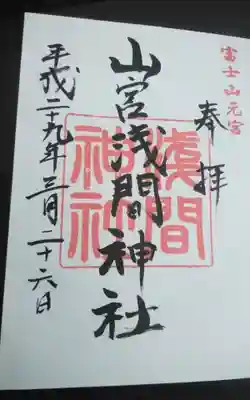 富士山元宮
奉拝
山宮浅間神社
淺間神社
平成二十九年三月二十六日